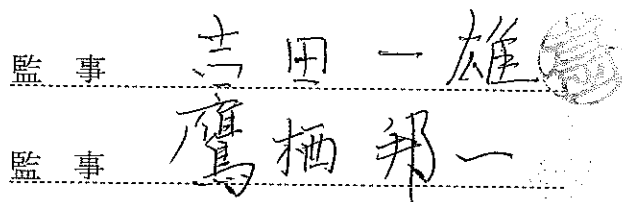 監事 吉田一雄
監事 鷹栖邦一